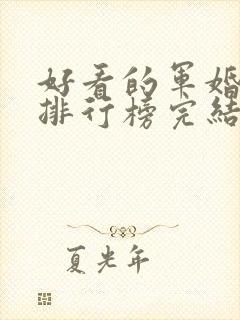 好看的军婚
排行榜完结
夏光年